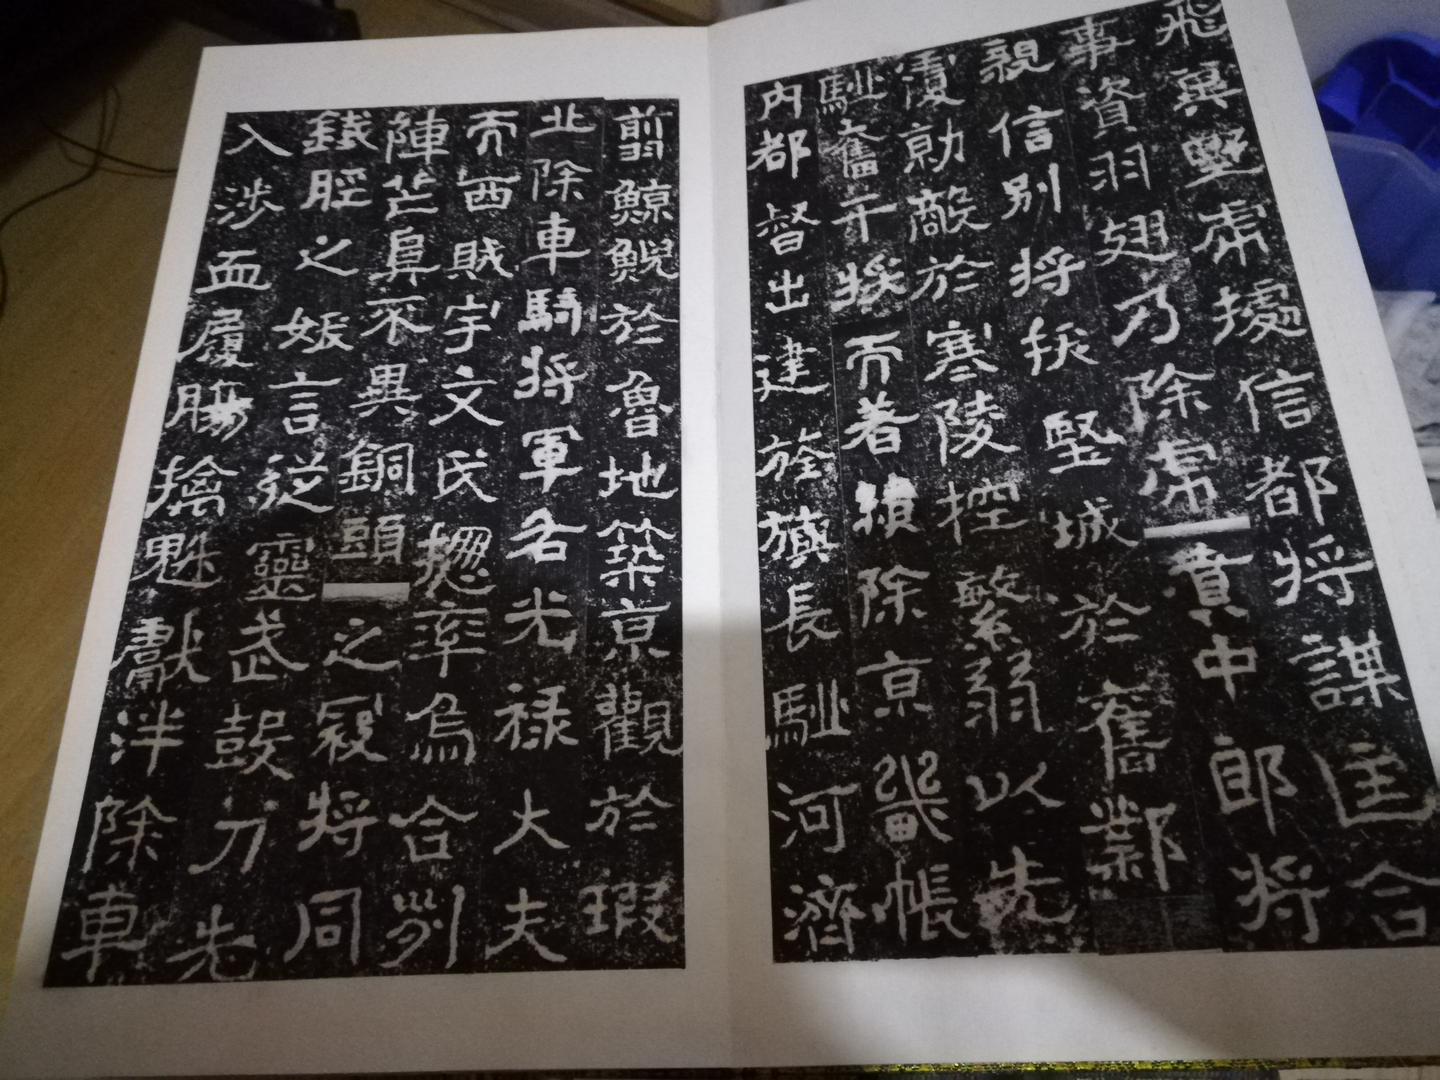 飛冀野席據信都將謀匡合
事資羽翅乃除虎賁中郎將
親信別將拔堅城於舊鄴
勍敵於寒陵控繁弱以先
馳奮干將而著績除京畿帳
內都督出建旌旟長馳河濟
翦鯨鯢於魯地築京觀於瑕
北除車騎將軍右光祿大夫
而西賊宇文氏摠率烏合列
陣芒阜不異銅頭之寇將同
鐵脛之妖言從靈武鼓刀先
入涉血履腸擒魁獻泮除車